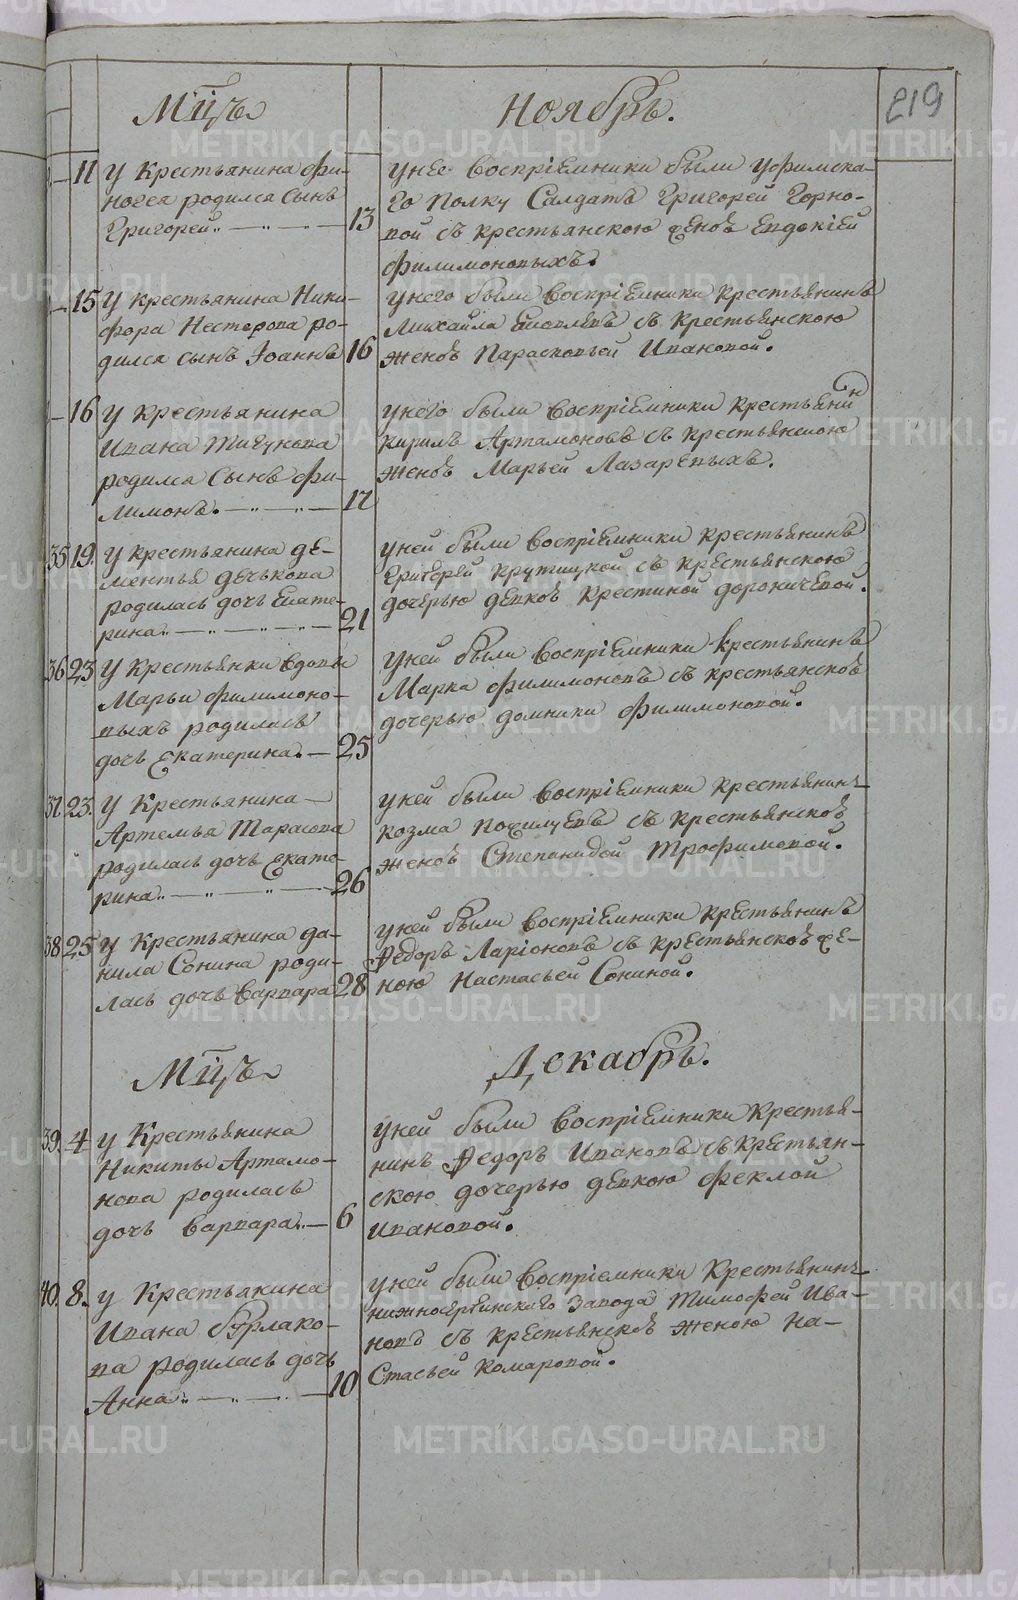 219
Мцъ Ноябрь.
11 У Крестьянина Фи-
ногея родился сынъ
Григорей. 13
у нее воспрiемники были Уфимска-
го полку Салдатъ Григорей Горно-
вой съ крестьянскою женою Евдокiей
Филимоновыхъ.
15 У крестьянина Ники-
фора Нестерова ро-
дился сынъ Iоаннъ 16
у него были воспрiемники крестьянинъ
Михайла съ крестьянскою
женой Парасковьей Ивановой.
16 У крестьянина
Ивана Тигунова
родился сынъ Фи-
лимонъ. 17
у него были воспрiемники крестьянинъ
Кирилъ Артамоновъ съ крестьянскою
женой Марьей Лазаревыхъ.
35 19. У крестьянина Де-
ментья Дечькова
родилась дочь Екате-
рина. 21
у ней были воспрiемники крестьянинъ
Григорей Крутицкой съ крестьянскою
дочерью девкой Крестиной Дороничевой.
36 23 У Крестьянки вдовы
Марьи Филимоно-
выхъ родилась
дочь Екатерина. 25
у ней были воспрiемники крестьянинъ
Марка Филимоновъ съ крестьянской
дочерью Домники Филимоновой.
37 23. У Крестьянина
Артемья Тарасова
родилась дочь Екате-
рина. 26
у ней были воспрiемники крестьянинъ
Козма съ крестьянской
женой Степанидой Трофимовой.
38 25 У Крестьянина Да-
нила Сонина роди-
лась дочь Варвара 28
у ней были воспрiемники крестьянинъ
Федоръ Ларiоновъ съ крестьянской же-
ною Настасьей Сониной.
Мцъ Декабрь.
39. 4 у Крестьянина
Никиты Артамо-
нова родилась
дочь Варвара. 6
у ней были воспрiемники Крестья-
нинъ Федоръ Ивановъ съ крестьян-
скою дочерью девкою Феклой
Ивановой.
40. 8. у Крестьянина
Ивана Бурлако-
ва родилась дочь
Анна 10
у ней были воспрiемники Крестьянинъ
нижносергинскаго Завода Тимофей Ива-
новъ съ крестьянской женою На-
стасьей Комаровой.
METRIKI.GASO-URAL.RU